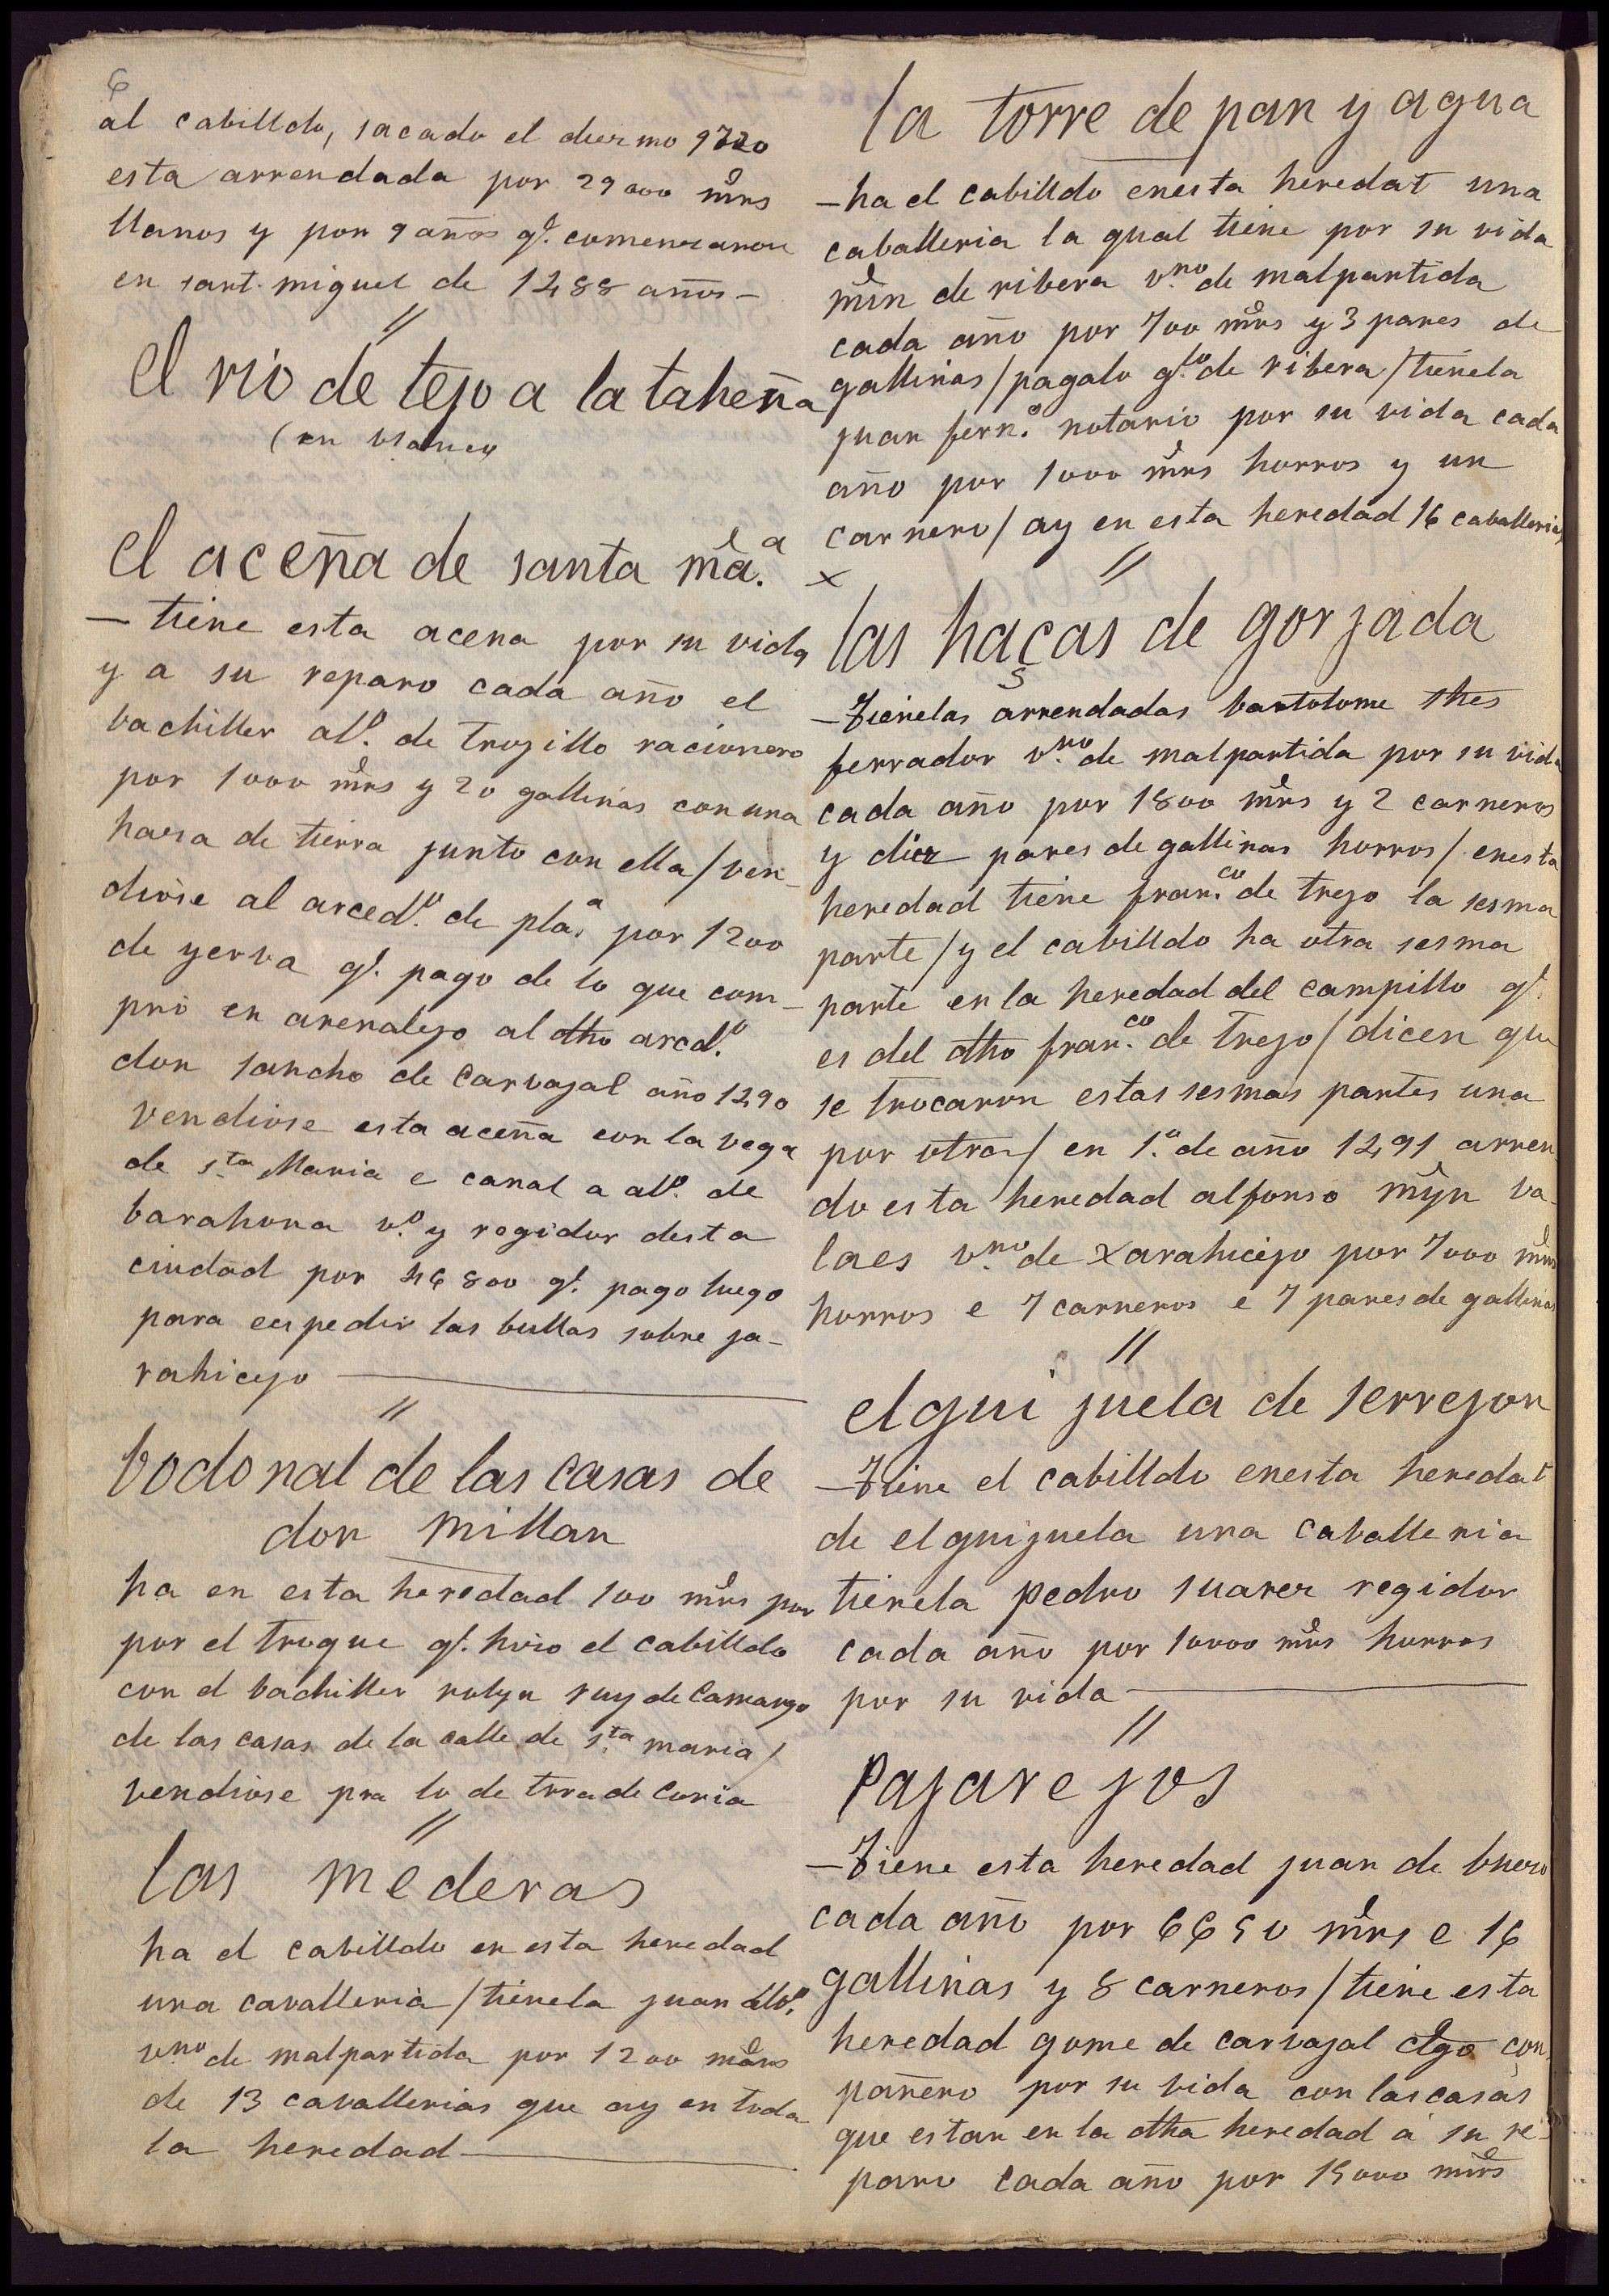 6
al cabilldo, sacado el diezmo 9720
esta arrendada por 29000 mrs
llanos y por 9 años q. comenzaron
en sant. miguel de 1488 años –
//
el rio de tejo a la taheña
(en blanco
el aceña de santa ma.ª
– tiene esta acena por su vida
y a su reparo cada año el
bachiller alº. de trugillo racionero
por 1000 mrs y 20 gallinas con una
haza de tierra junto con ella / ven–
diose al arcedº. de plaª. por 1200
de yerva q. pago de lo que com–
pró en arenalejo al dho arcdº.
don sancho de carvajal año 1490
vendiose esta aceña con la vega
de s.ta Maria e canal a alº. de
barahona vº. y regidor desta
ciudad por 46800 q. pago luego
para espedir las bullas sobre ja–
rahicejo
//
bodonal de las casas de
don millan
ha en esta heredad 100 mrs por
por el troque q. hizo el cabilldo
con el bachiller ruy de Camargo
de las casas de la calle de s.ta maria /
vendiose pra lo de trra de coria
//
las mederas
ha el cabilldo en esta heredad
una cavalleria / tienela juan allº.
v.no de malpartida por 1200 mrs
de 13 cavallerias que ay en toda
la heredad
la torre de pan y agua
– ha el cabilldo enesta heredat una
caballeria la qual tiene por su vida
min de ribera v.no de malpartida
cada año por 700 mrs y 3 pares de
gallinas / pagalo g.lo de ribera / tienela
juan fern.º notario por su vida cada
año por 1000 mrs horros y un
carnero / ay en esta heredad 16 caballerias
x //
las haças de gorjada
– Tienelas arrendadas bartolome shes
ferrador v.no de malpartida por su vida
cada año por 1800 mrs y 2 carneros
y diez pares de gallinas horros / enesta
heredad tiene fran.co de trejo la sesma
parte / y el cabilldo ha otra sesma
parte en la heredad del campillo q.
es del dho fran.co de Trejo / dicen que
se trocaron estas sesmas partes una
por otra / en 1.º de año 1491 arren
do esta heredad alfonso myn ba–
laes v.no de xarahicejo por 7000 mrs
horros e 7 carneros e 7 pares de gallinas
//
elgui juela de serrejon
– Tiene el cabilldo enesta heredat
de elguijuela una caballeria
tienela pedro suarez regidor
cada año por 10000 mrs horros
por su vida
//
Pajarejos
– Tiene esta heredad juan de bueso
cada año por 6650 mrs e 16
gallinas y 8 carneros / tiene esta
heredad gome de carvajal clgo con
pañero por su vida con las casas
que estan en la dha heredad á su re–
paro cada año por 15000 mrs